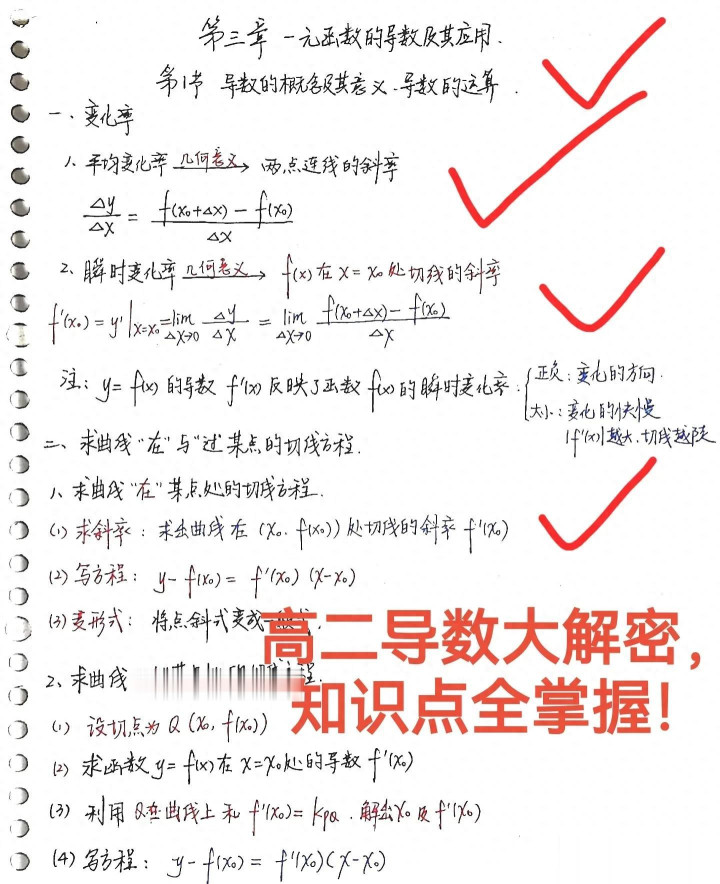 第三章 一元函数的导数及其应用.
第1节 导数的概念及其意义、导数的运算.
一、变化率
1、平均变化率 几何意义→ 两点连线的斜率
Δy/Δx = (f(x₀+Δx) - f(x₀))/Δx
2、瞬时变化率 几何意义→ f(x)在x=x₀处切线的斜率
f'(x₀) = y'|x=x₀ = lim Δx→0 Δy/Δx = lim Δx→0 (f(x₀+Δx) - f(x₀))/Δx
注: y=f(x)的导数f'(x)反映了函数f(x)的瞬时变化率. { 正负: 变化的方向.
大小: 变化的快慢
|f'(x)|越大、切线越陡
二、求曲线“在”与“过”某点的切线方程.
1、求曲线“在”某点处的切线方程.
(1) 求斜率: 求出曲线在(x₀, f(x₀))处切线的斜率f'(x₀)
(2) 写方程: y-f(x₀) = f'(x₀)(x-x₀)
(3) 变形式: 将点斜式变成一
高二导数大解密,
2、求曲线 程.
知识点全掌握!
(1) 设切点为Q(x₀, f(x₀))
(2) 求函数y=f(x)在x=x₀处的导数f'(x₀)
(3) 利用Q在曲线上和f'(x₀)=kPQ, 解出x₀及f'(x₀)
(4) 写方程: y-f(x₀) = f'(x₀)(x-x₀)